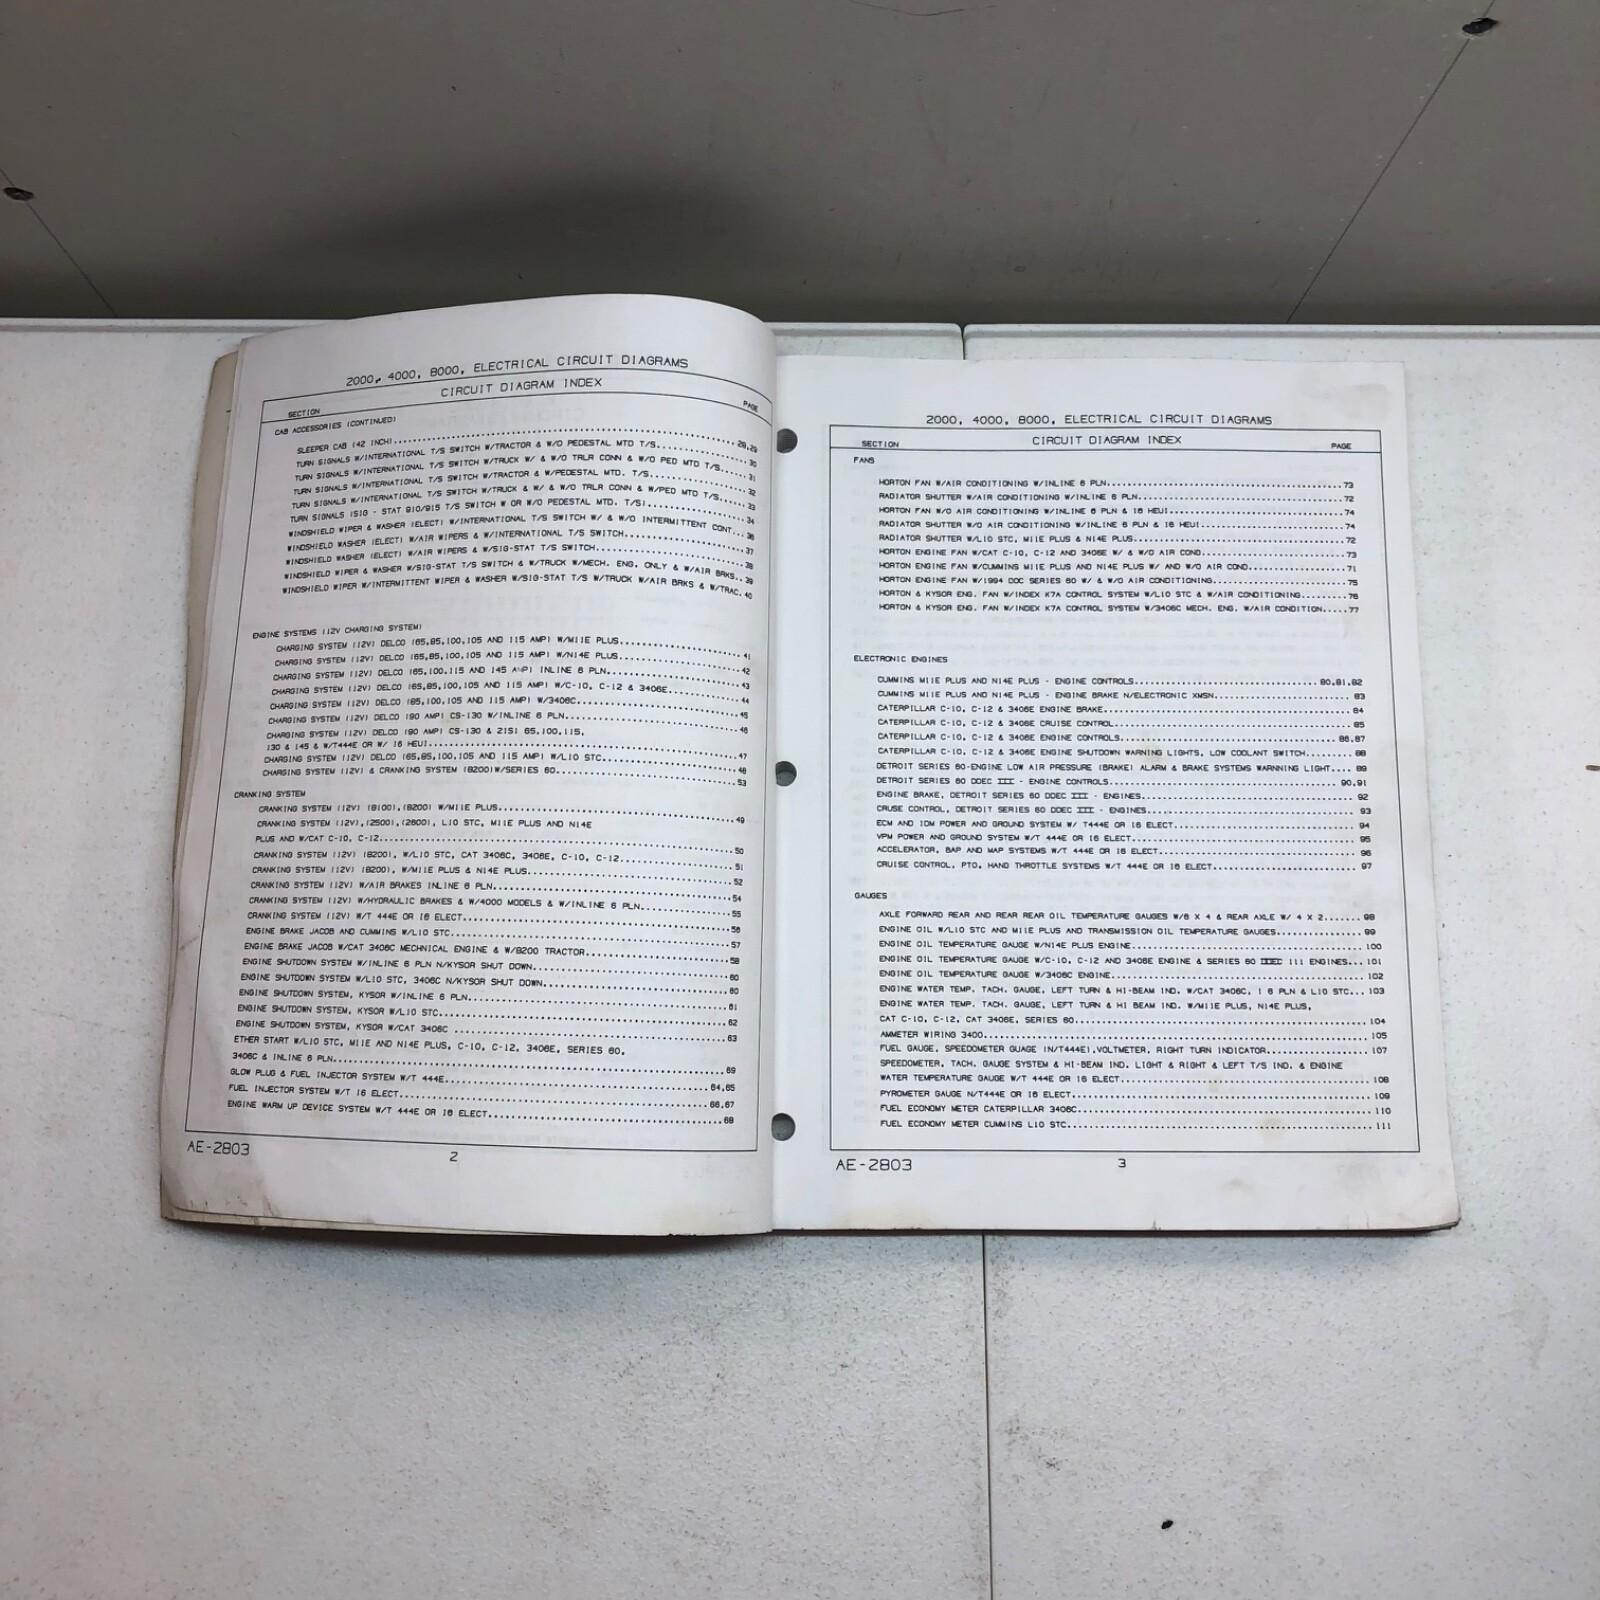 2000, 4000, 8000, ELECTRICAL CIRCUIT DIAGRAMS
CIRCUIT DIAGRAM INDEX
SECTION PAGE
CAB ACCESSORIES (CONTINUED)
SLEEPER CAB (42 INCH)...28,29
TURN SIGNALS W/INTERNATIONAL T/S SWITCH W/TRACTOR & W/O PEDESTAL MTD T/S...30
TURN SIGNALS W/INTERNATIONAL T/S SWITCH W/TRUCK W/ & W/O TRLR CONN & W/O PED MTD T/S...31
TURN SIGNALS W/INTERNATIONAL T/S SWITCH W/TRACTOR & W/PEDESTAL MTD. T/S...32
TURN SIGNALS W/INTERNATIONAL T/S SWITCH W/TRUCK & W/ & W/O TRLR CONN & W/PED MTD T/S...33
TURN SIGNALS (SIG - STAT 910/915 T/S SWITCH W OR W/O PEDESTAL MTD. T/S)...34
WINDSHIELD WIPER & WASHER (ELECT) W/INTERNATIONAL T/S SWITCH W/ & W/O INTERMITTENT CONT...36
WINDSHIELD WASHER (ELECT) W/AIR WIPERS & W/INTERNATIONAL T/S SWITCH...37
WINDSHIELD WASHER (ELECT) W/AIR WIPERS & W/SIG-STAT T/S SWITCH...38
WINDSHIELD WIPER & WASHER W/SIG-STAT T/S SWITCH & W/TRUCK W/MECH. ENG. ONLY & W/AIR BRKS..39
WINDSHIELD WIPER W/INTERMITTENT WIPER & WASHER W/SIG-STAT T/S W/TRUCK W/AIR BRKS & W/TRAC.40
ENGINE SYSTEMS (12V CHARGING SYSTEM)
CHARGING SYSTEM (12V) DELCO (65,85,100,105 AND 115 AMP) W/M11E PLUS...41
CHARGING SYSTEM (12V) DELCO (65,85,100,105 AND 115 AMP) W/N14E PLUS...42
CHARGING SYSTEM (12V) DELCO (65,100,115 AND 145 AMP) INLINE 6 PLN...43
CHARGING SYSTEM (12V) DELCO (65,85,100,105 AND 115 AMP) W/C-10, C-12 & 3406E...44
CHARGING SYSTEM (12V) DELCO (65,85,100,105 AND 115 AMP) W/3406C...45
CHARGING SYSTEM (12V) DELCO (90 AMP) CS-130 W/INLINE 6 PLN...46
CHARGING SYSTEM (12V) DELCO (90 AMP) CS-130 & 21SI 65,100,115,
130 & 145 & W/T444E OR W/ 16 HEUI...47
CHARGING SYSTEM (12V) DELCO (65,85,100,105 AND 115 AMP) W/L10 STC...48
CHARGING SYSTEM (12V) & CRANKING SYSTEM (8200)W/SERIES 60...53
CRANKING SYSTEM
CRANKING SYSTEM (12V) (8100),(8200) W/M11E PLUS...49
CRANKING SYSTEM (12V),(2500),(2600), L10 STC, M11E PLUS AND N14E
PLUS AND W/CAT C-10, C-12...50
CRANKING SYSTEM (12V) (8200), W/L10 STC, CAT 3406C, 3406E, C-10, C-12...51
CRANKING SYSTEM (12V) (8200), W/M11E PLUS & N14E PLUS...52
CRANKING SYSTEM (12V) W/AIR BRAKES INLINE 6 PLN...54
CRANKING SYSTEM (12V) W/HYDRAULIC BRAKES & W/4000 MODELS & W/INLINE 6 PLN...55
CRANKING SYSTEM (12V) W/T 444E OR 16 ELECT...56
ENGINE BRAKE JACOB AND CUMMINS W/L10 STC...57
ENGINE BRAKE JACOB W/CAT 3406C MECHNICAL ENGINE & W/8200 TRACTOR...58
ENGINE SHUTDOWN SYSTEM W/INLINE 6 PLN N/KYSOR SHUT DOWN...60
ENGINE SHUTDOWN SYSTEM W/L10 STC, 3406C N/KYSOR SHUT DOWN...60
ENGINE SHUTDOWN SYSTEM, KYSOR W/INLINE 6 PLN...61
ENGINE SHUTDOWN SYSTEM, KYSOR W/L10 STC...62
ENGINE SHUTDOWN SYSTEM, KYSOR W/CAT 3406C ...63
ETHER START W/L10 STC, M11E AND N14E PLUS, C-10, C-12, 3406E, SERIES 60,
3406C & INLINE 6 PLN...69
GLOW PLUG & FUEL INJECTOR SYSTEM W/T 444E...64,65
FUEL INJECTOR SYSTEM W/T 16 ELECT...66,67
ENGINE WARM UP DEVICE SYSTEM W/T 444E OR 16 ELECT...68
AE-2803 2
2000, 4000, 8000, ELECTRICAL CIRCUIT DIAGRAMS
SECTION CIRCUIT DIAGRAM INDEX PAGE
FANS
HORTON FAN W/AIR CONDITIONING W/INLINE 6 PLN...73
RADIATOR SHUTTER W/AIR CONDITIONING W/INLINE 6 PLN...72
HORTON FAN W/O AIR CONDITIONING W/INLINE 6 PLN & 16 HEUI...74
RADIATOR SHUTTER W/O AIR CONDITIONING W/INLINE 6 PLN & 16 HEUI...74
RADIATOR SHUTTER W/L10 STC, M11E PLUS & N14E PLUS...72
HORTON ENGINE FAN W/CAT C-10, C-12 AND 3406E W/ & W/O AIR COND...73
HORTON ENGINE FAN W/CUMMINS M11E PLUS AND N14E PLUS W/ AND W/O AIR COND...71
HORTON ENGINE FAN W/1994 DDC SERIES 60 W/ & W/O AIR CONDITIONING...75
HORTON & KYSOR ENG. FAN W/INDEX K7A CONTROL SYSTEM W/L10 STC & W/AIR CONDITIONING...76
HORTON & KYSOR ENG. FAN W/INDEX K7A CONTROL SYSTEM W/3406C MECH. ENG. W/AIR CONDITION...77
ELECTRONIC ENGINES
CUMMINS M11E PLUS AND N14E PLUS - ENGINE CONTROLS...80,81,82
CUMMINS M11E PLUS AND N14E PLUS - ENGINE BRAKE N/ELECTRONIC XMSN...83
CATERPILLAR C-10, C-12 & 3406E ENGINE BRAKE...84
CATERPILLAR C-10, C-12 & 3406E CRUISE CONTROL...85
CATERPILLAR C-10, C-12 & 3406E ENGINE CONTROLS...86,87
CATERPILLAR C-10, C-12 & 3406E ENGINE SHUTDOWN WARNING LIGHTS, LOW COOLANT SWITCH...88
DETROIT SERIES 60-ENGINE LOW AIR PRESSURE (BRAKE) ALARM & BRAKE SYSTEMS WARNNING LIGHT....89
DETROIT SERIES 60 DDEC III - ENGINE CONTROLS...90,91
ENGINE BRAKE, DETROIT SERIES 60 DDEC III - ENGINES...92
CRUSE CONTROL, DETROIT SERIES 60 DDEC III - ENGINES...93
ECM AND IDM POWER AND GROUND SYSTEM W/ T444E OR 16 ELECT...94
VPM POWER AND GROUND SYSTEM W/T 444E OR 16 ELECT...95
ACCELERATOR, BAP AND MAP SYSTEMS W/T 444E OR 16 ELECT...96
CRUISE CONTROL, PTO, HAND THROTTLE SYSTEMS W/T 444E OR 16 ELECT...97
GAUGES
AXLE FORWARD REAR AND REAR REAR OIL TEMPERATURE GAUGES W/6 X 4 & REAR AXLE W/ 4 X 2...98
ENGINE OIL W/L10 STC AND M11E PLUS AND TRANSMISSION OIL TEMPERATURE GAUGES...99
ENGINE OIL TEMPERATURE GAUGE W/N14E PLUS ENGINE...100
ENGINE OIL TEMPERATURE GAUGE W/C-10, C-12 AND 3406E ENGINE & SERIES 60 DDEC 111 ENGINES...101
ENGINE OIL TEMPERATURE GAUGE W/3406C ENGINE...102
ENGINE WATER TEMP. TACH. GAUGE, LEFT TURN & HI-BEAM IND. W/CAT 3406C, I 6 PLN & L10 STC...103
ENGINE WATER TEMP. TACH. GAUGE, LEFT TURN & HI BEAM IND. W/M11E PLUS, N14E PLUS,
CAT C-10, C-12, CAT 3406E, SERIES 60...104
AMMETER WIRING 3400...105
FUEL GAUGE, SPEEDOMETER GUAGE (N/T444E),VOLTMETER, RIGHT TURN INDICATOR...107
SPEEDOMETER, TACH. GAUGE SYSTEM & HI-BEAM IND. LIGHT & RIGHT & LEFT T/S IND. & ENGINE
WATER TEMPERATURE GAUGE W/T 444E OR 16 ELECT...108
PYROMETER GAUGE N/T444E OR 16 ELECT...109
FUEL ECONOMY METER CATERPILLAR 3406C...110
FUEL ECONOMY METER CUMMINS L10 STC...111
AE-2803 3